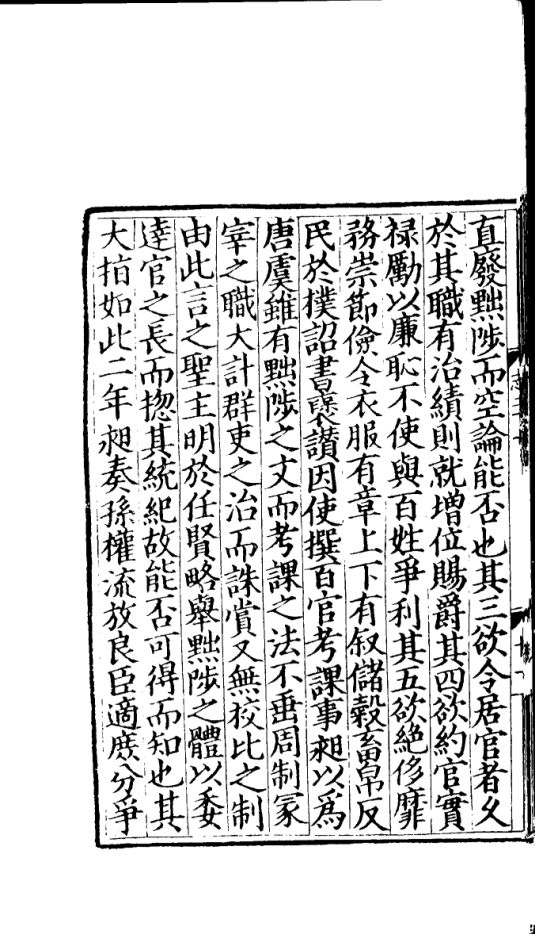 直廢黜陟而空論能否也其三欲令居官者乆
於其職有治績則就增位賜爵其四欲約官實
祿勵以廉恥不使與百姓爭利其五欲絶侈靡
務崇節儉令衣服有章上下有叙儲穀畜帛反
民於樸詔書襃讃因使撰百官考課事昶以爲
唐虞雖有黜陟之文而考課之法不垂周制冢
宰之職大計群吏之治而誅賞又無校比之制
由此言之聖主明於任賢略舉黜陟之體以委
逹官之長而揔其統紀故能否可得而知也其
大指如此二年昶奏孫權流放良臣適庻分爭